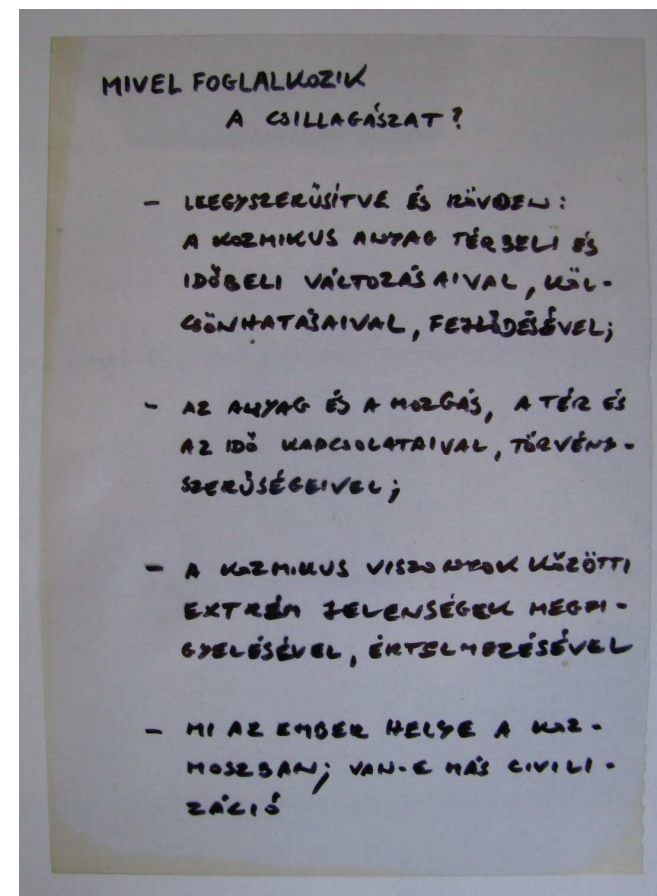 MIVEL FOGLALKOZIK
A CSILLAGÁSZAT?
- LEEGYSZERŰSÍTVE ÉS RÖVIDEN:
A KOZMIKUS ANYAG TÉRBELI ÉS
IDŐBELI VÁLTOZÁSAIVAL, KÖL-
CSÖNHATÁSAIVAL, FEJLŐDÉSÉVEL;
- AZ ANYAG ÉS A MOZGÁS, A TÉR ÉS
AZ IDŐ KAPCSOLATAIVAL, TÖRVÉNY-
SZERŰSÉGEIVEL;
- A KOZMIKUS VISZONYOK KÖZÖTTI
EXTRÉM JELENSÉGEK MEGFI-
GYELÉSÉVEL, ÉRTELMEZÉSÉVEL
- MI AZ EMBER HELYE A KOZ-
MOSZBAN; VAN-E MÁS CIVILI-
ZÁCIÓ